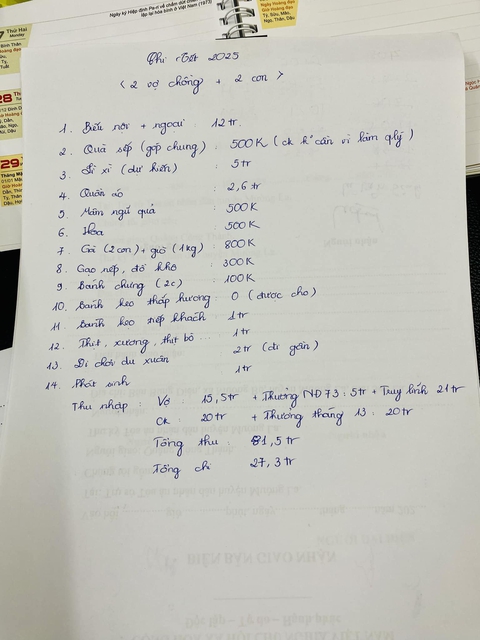 Ngày ký Hiệp định Pa-ri về chấm dứt chiến
lập lại hòa bình ở Việt Nam (1973)
Thứ Hai
28
29
Chi Tết 2025
< 2 vợ chồng + 2 con >
1. Biếu nội + ngoại : 12 tr
2. Quà sếp (góp chung) : 500K (ck k cần vì làm qlý)
3. Lì xì (dự kiến) : 5 tr
4. Quần áo : 2,6 tr
5. Mâm ngũ quả : 500K
6. Hoa : 500K
7. Gà (2 con) + giò (1kg) : 800K
8. Gạo nếp, đồ khô : 300K
9. Bánh chưng (2c) : 100K
10. Bánh kẹo thắp hương : 0 (được cho)
11. Bánh kẹo tiếp khách : 1 tr
12. Thịt, xương, thịt bò ... 1 tr
13. Đi chơi du xuân 2 tr (đi gần)
14. Phát sinh 1 tr
Thu nhập : Vợ : 15,5 tr + Thưởng NĐ73 : 5 tr + Truy lĩnh 21 tr
Ck : 20 tr + Thưởng tháng 13 : 20 tr
Tổng thu : 81,5 tr
Tổng chi 27,3 tr